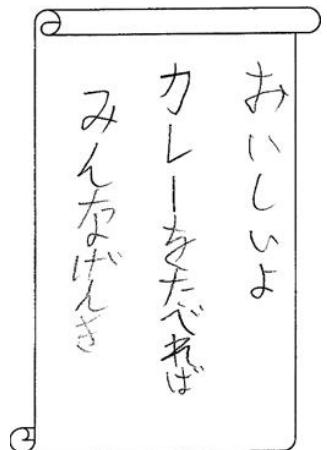 おいしいよ
カレーをたべれば
みんなげんき